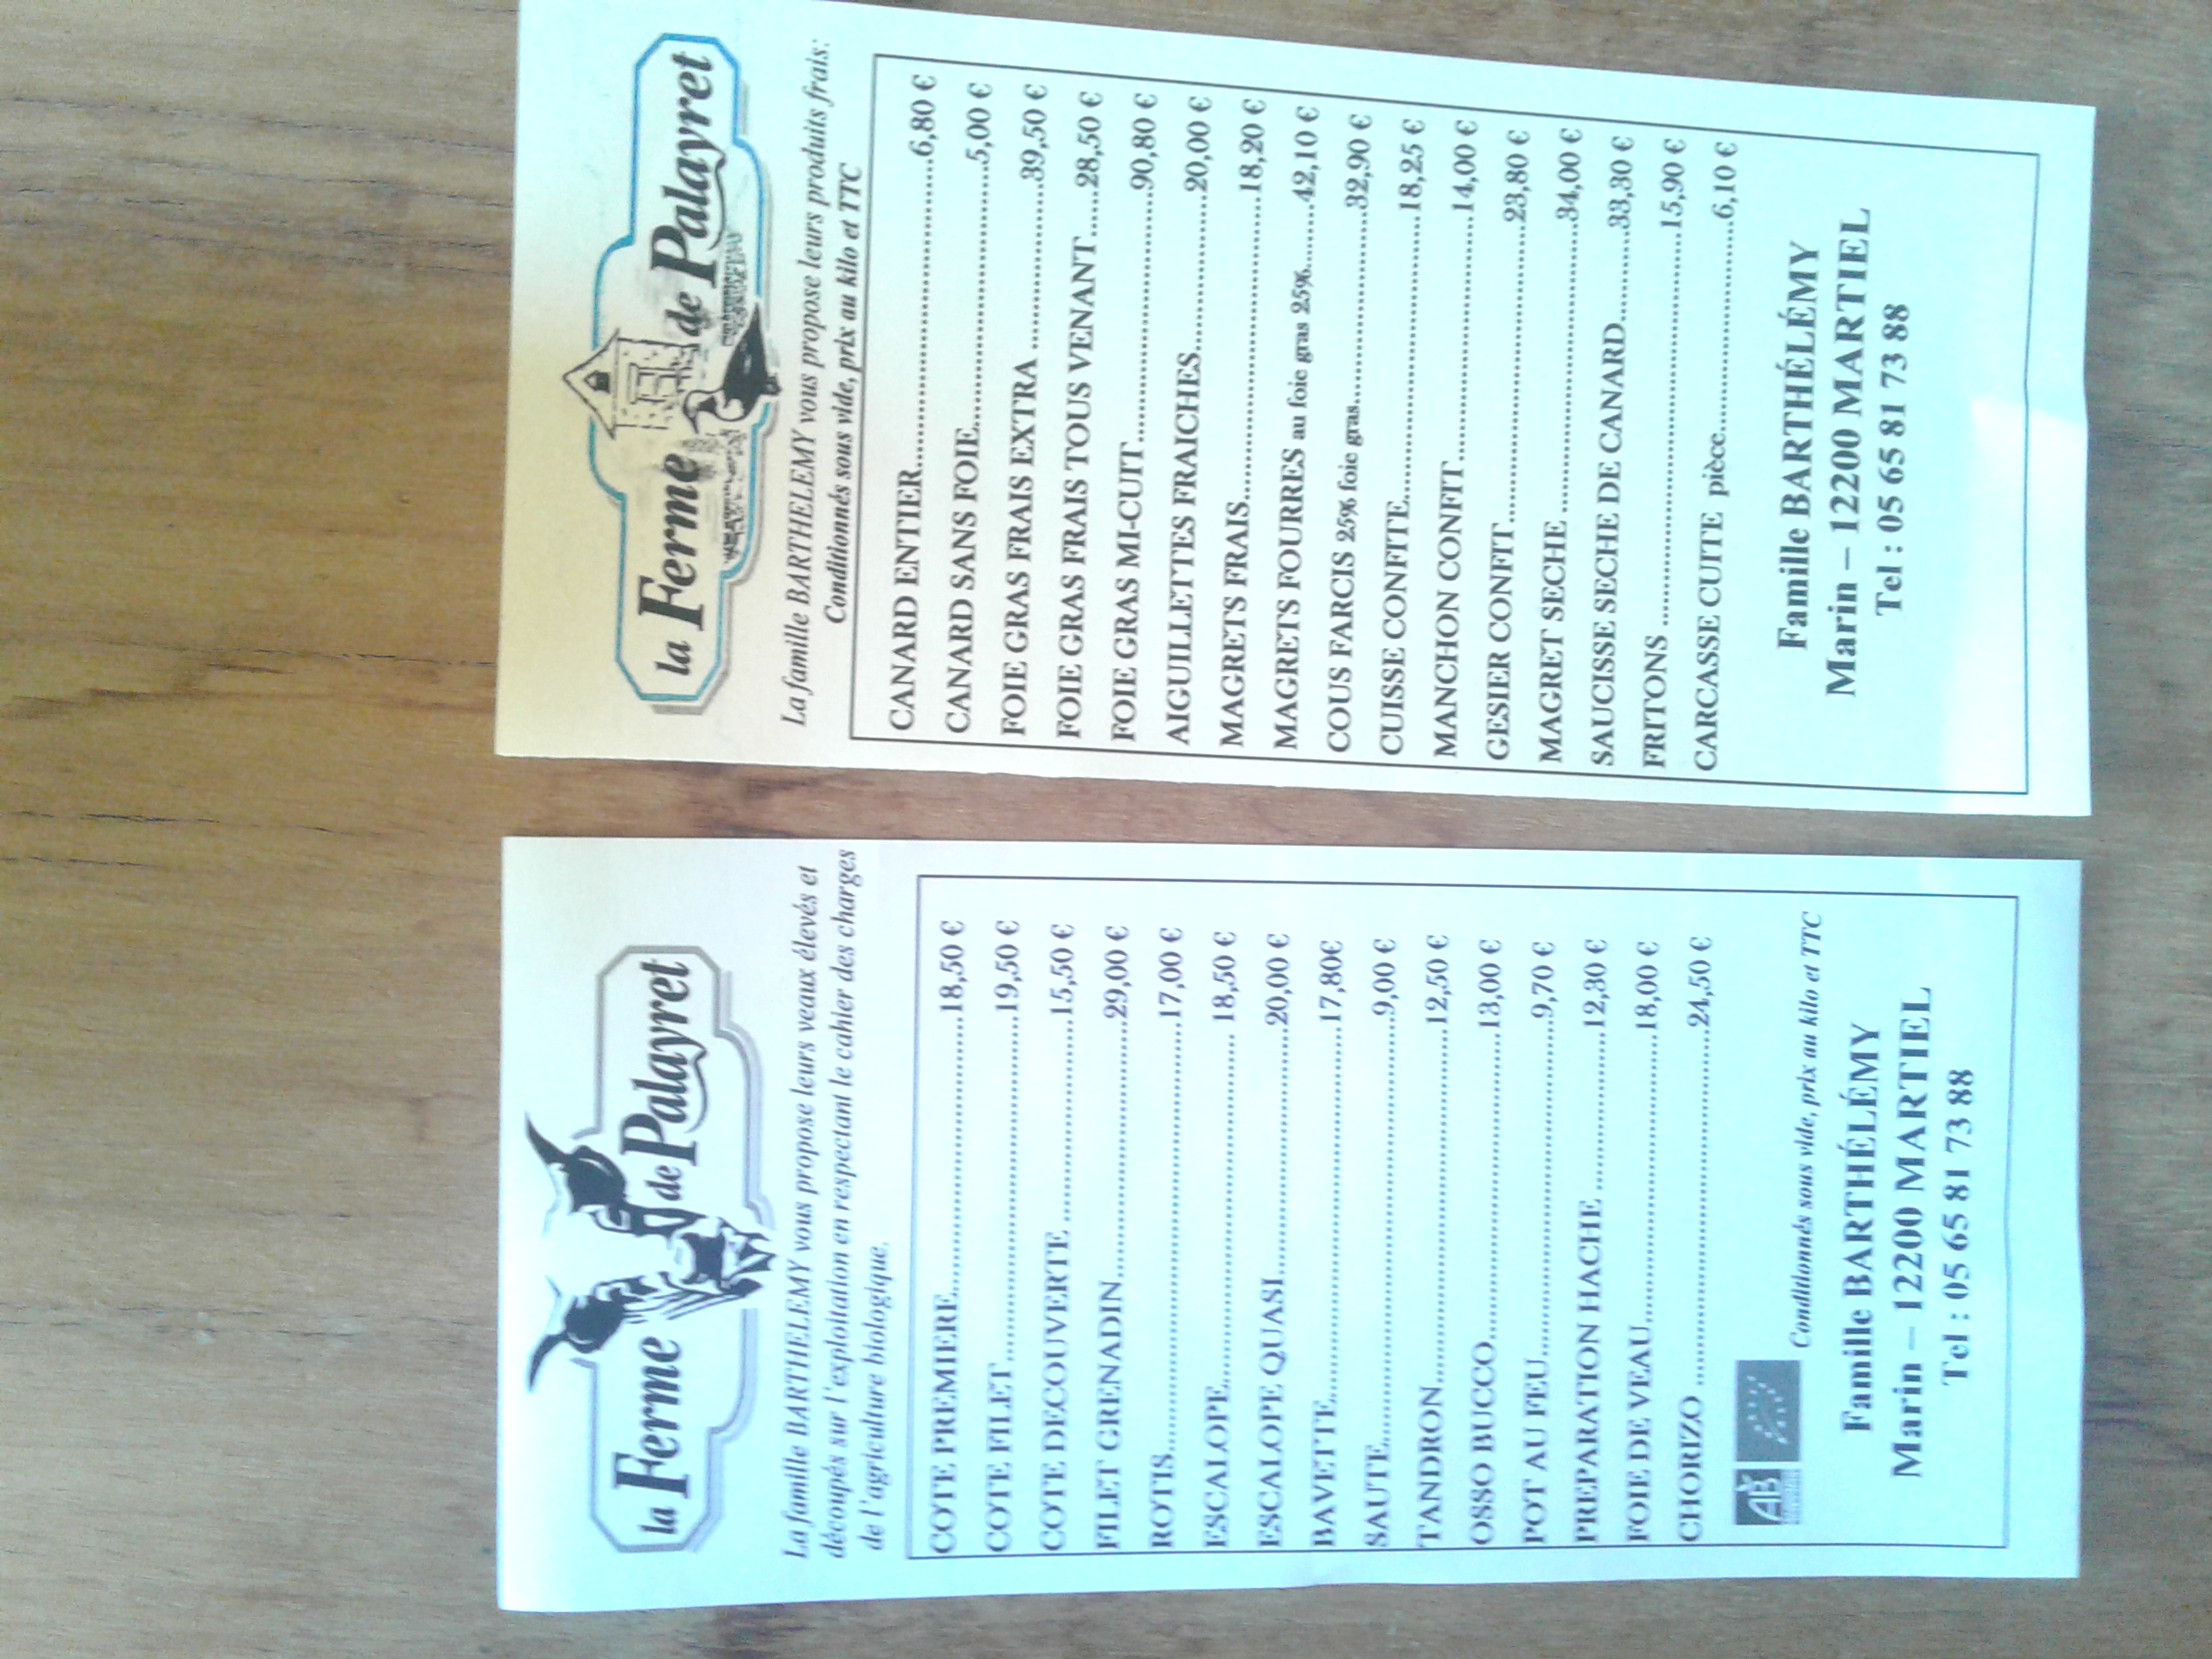 la Ferme de Palayret
La famille BARTHELEMY vous propose leurs veaux élevés et
découpés sur l'exploitation en respectant le cahier des charges
de l'agriculture biologique.
COTE PREMIERE......18,50 €
COTE FILET......19,50 €
COTE DECOUVERTE ......15,50 €
FILET GRENADIN......29,00 €
ROTIS......17,00 €
ESCALOPE...... 18,50 €
ESCALOPE QUASI......20,00 €
BAVETTE......17,80€
SAUTE......9,00 €
TANDRON......12,50 €
OSSO BUCCO......13,00 €
POT AU FEU......9,70 €
PREPARATION HACHE ......12,30 €
FOIE DE VEAU......18,00 €
CHORIZO ......24,50 €
AB
Conditionnés sous vide, prix au kilo et TTC
Famille BARTHÉLÉMY
Marin – 12200 MARTIEL
Tel : 05 65 81 73 88
la Ferme de Palayret
La famille BARTHELEMY vous propose leurs produits frais:
Conditionnés sous vide, prix au kilo et TTC
CANARD ENTIER......6,80 €
CANARD SANS FOIE......5,00 €
FOIE GRAS FRAIS EXTRA ......39,50 €
FOIE GRAS FRAIS TOUS VENANT......28,50 €
FOIE GRAS MI-CUIT......90,80 €
AIGUILLETTES FRAICHES......20,00 €
MAGRETS FRAIS......18,20 €
MAGRETS FOURRES au foie gras 25%......42,10 €
COUS FARCIS 25% foie gras......32,90 €
CUISSE CONFITE......18,25 €
MANCHON CONFIT......14,00 €
GESIER CONFIT......23,80 €
MAGRET SECHE ......34,00 €
SAUCISSE SECHE DE CANARD......33,30 €
FRITONS ......15,90 €
CARCASSE CUITE pièce......6,10 €
Famille BARTHÉLÉMY
Marin – 12200 MARTIEL
Tel : 05 65 81 73 88